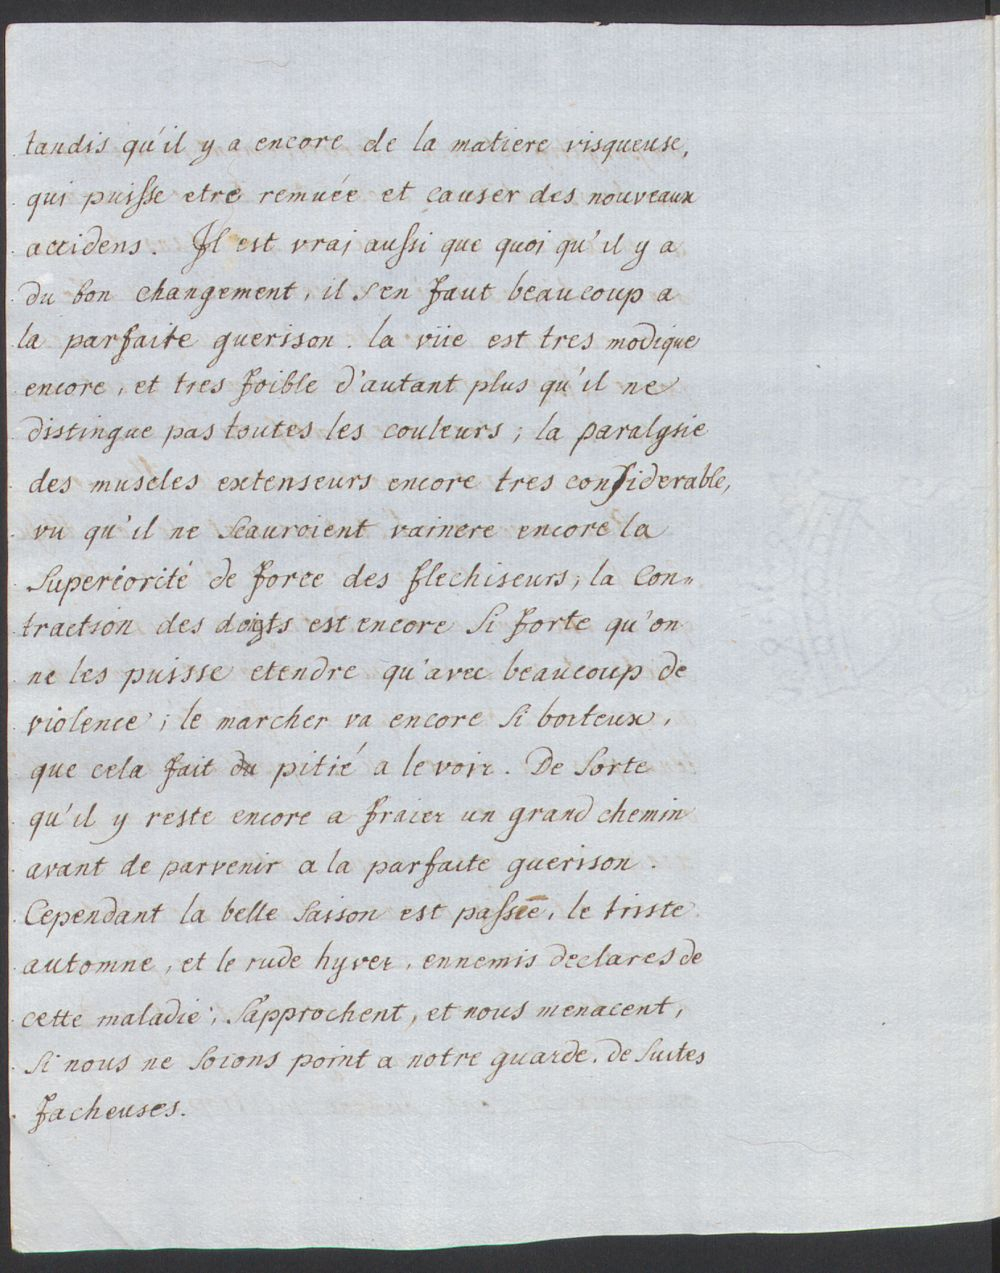 tandis qu'il y a encore de la matiere visqueuse,
qui puisse etre remuée et causer des nouveaux
accidens. Il est vrai aussi que quoi qu'il y a
du bon changement, il s'en faut beaucoup a
la parfaite guerison. la vüe est tres modique
encore, et tres foible d'autant plus qu'il ne
distingue pas toutes les couleurs; la paralysie
des muscles extenseurs encore tres considerable,
vu qu'il ne scauroient vaincre encore la
Superiorité de force des flechiseurs; la Con-
traction des doigts est encore Si forte qu'on
ne les puisse etendre qu'avec beaucoup de
violence; le marcher va encore Si boiteux,
que cela fait du pitié a le voir. De Sorte
qu'il y reste encore a fraier un grand chemin
avant de parvenir a la parfaite guerison.
Cependant la belle Saison est passée, le triste
automne, et le rude hyver, ennemis declares de
cette maladie, S'approchent, et nous menacent,
Si nous ne Soions point a notre guarde, de Suites
facheuses.